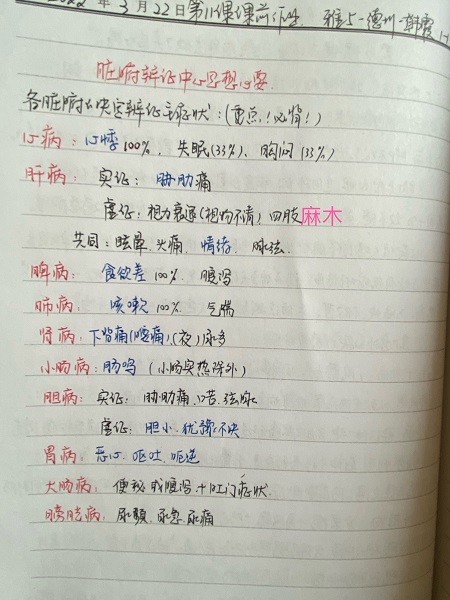 2022年3月22日第11课课前作业 雅上-德州-韩霞
脏腑辨证中心思想心要
各脏腑入失客辨证主症状:(重点!必背!)
心病:心悸100%、失眠(33%)、胸闷(33%)
肝病:实证:胁肋痛
虚证:视力衰退(视物不清)四肢麻木
共同:眩晕、头痛、情绪、脉弦.
脾病:食欲差100%、腹泻
肺病:咳嗽100%、气喘
肾病:下背痛(腰痛)、(夜)尿多
小肠病:肠鸣 (小肠实热除外)
胆病:实证:胁肋痛、口苦、弦脉
虚证:胆小、犹豫不决
胃病:恶心、呕吐、呃逆
大肠病:便秘或腹泻+肛门症状.
膀胱病:尿频、尿急、尿痛